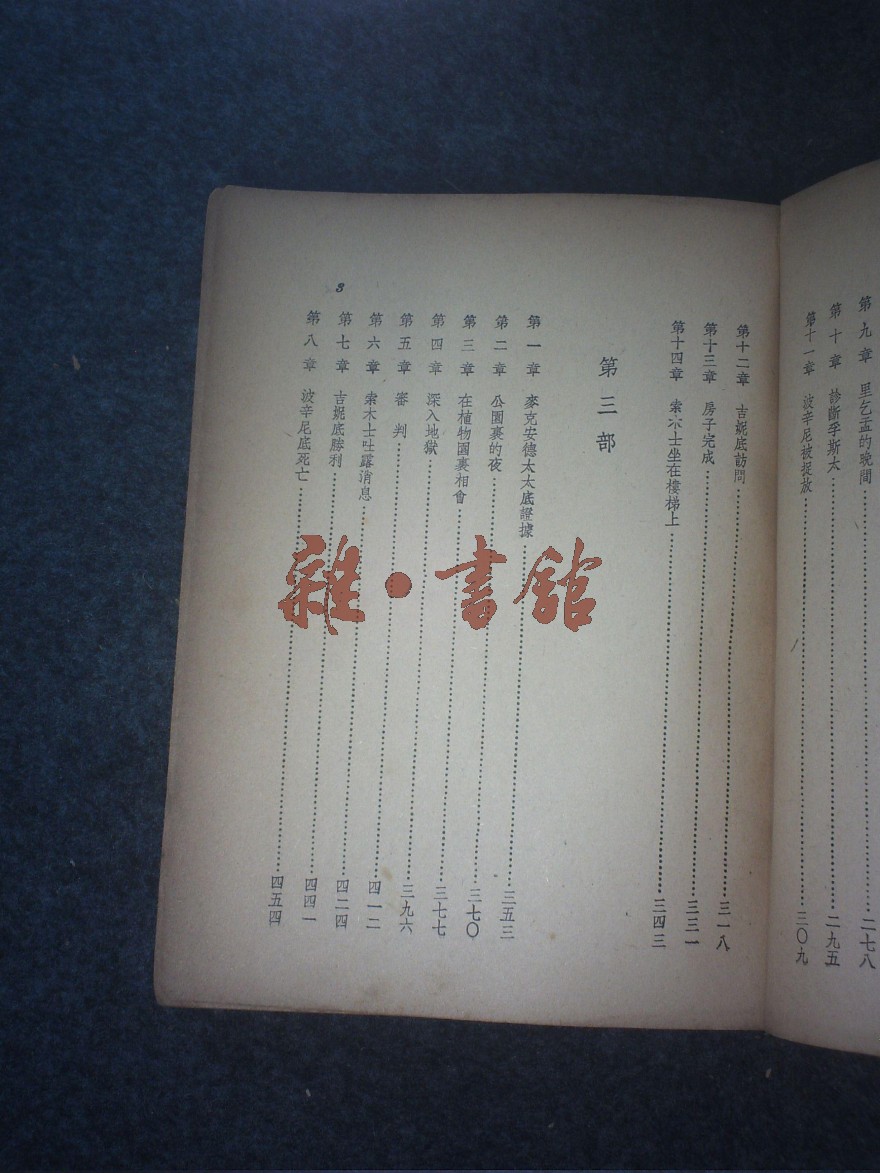 第九章 里乞孟的晚間……二七八
第十章 診斷季斯太……二九五
第十一章 波辛尼被捉放……三〇九
第十二章 吉妮底訪問……三一八
第十三章 房子完成……三三一
第十四章 索木士坐在樓梯上……三四三
第三部
第一章 麥克安德太太底證據……三五三
第二章 公園裏的夜……三七〇
第三章 在植物園裏相會……三七七
第四章 深入地獄……三九六
第五章 審判……四一二
第六章 索木士吐露消息……四二四
第七章 吉妮底勝利……四四一
第八章 波辛尼底死亡……四五四
3
雜·書館